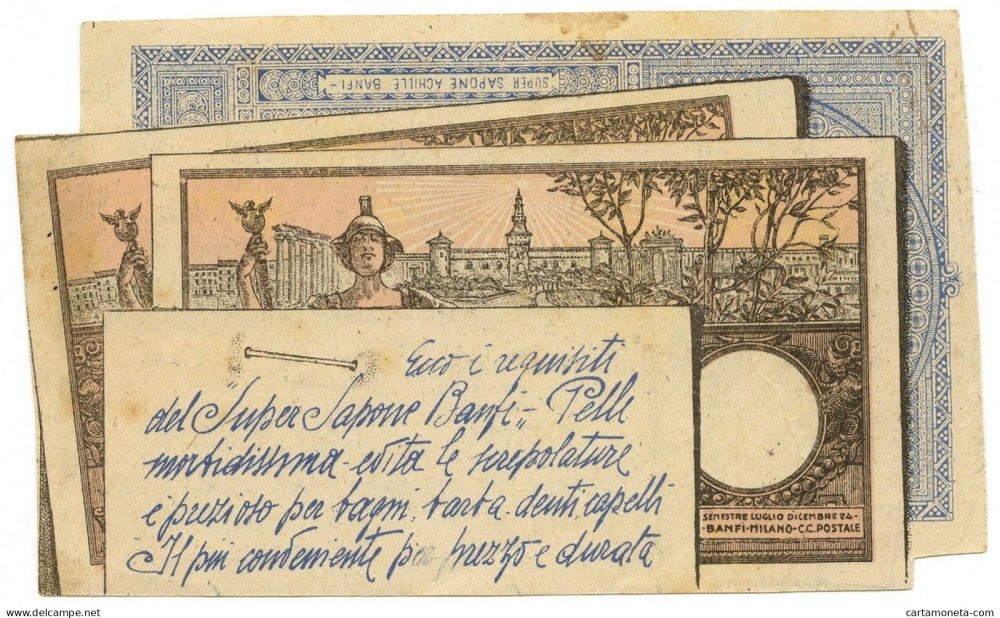 SUPER SAPONE ACHILLE BANFI-
Ecco i requisiti
del "Super Sapone Banfi„- Pelle
morbidissima - evita le screpolature
è prezioso per bagni, barba - denti, capelli
Il più conveniente per prezzo e durata
SEMESTRE LUGLIO DICEMBRE 24-
-BANFI-MILANO-C.C.POSTALE
www.delcampe.net
cartamoneta-com